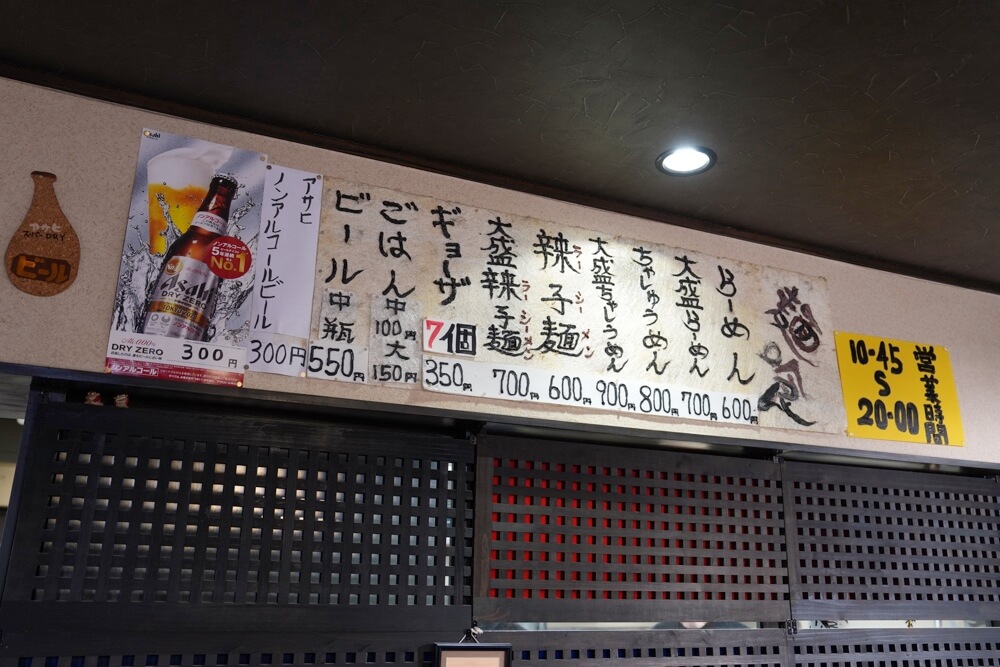 営業時間
10-45
S
20-00
らーめん
600円
大盛らーめん
700円
ちゃしゅうめん
800円
大盛ちゃしゅうめん
900円
辣子麺
ラーシーメン
600円
大盛辣子麺
ラーシーメン
700円
ギョーザ
7個
350円
ごはん
中100円
大150円
ビール中瓶
550円
アサヒ
ノンアルコールビール
300円
Asahi
ノンアルコール
5年連続
No.1
Asahi
DRY ZERO
Alc.0.00%
DRY ZERO
300円
ノンアルコール
アサヒ
スーパーDRY
ビール